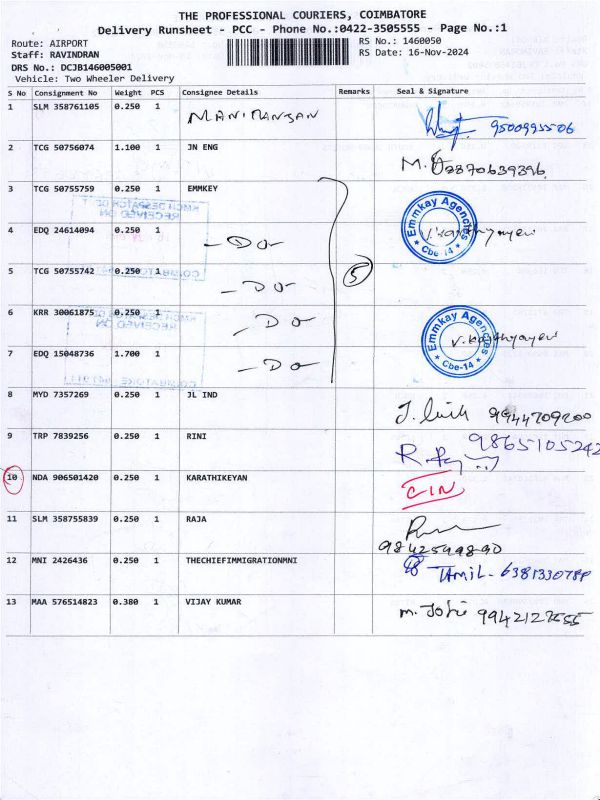 THE PROFESSIONAL COURIERS, COIMBATORE
Delivery Runsheet - PCC - Phone No.:0422-3505555 - Page No.:1
Route: AIRPORT RS No.: 1460050
Staff: RAVINDRAN RS Date: 16-Nov-2024
DRS No.: DCJB146005001
Vehicle: Two Wheeler Delivery
S No Consignment No Weight PCS Consignee Details Remarks Seal & Signature
1 SLM 358761105 0.250 1 9500995506
2 TCG 50756074 1.100 1 JN ENG
3 TCG 50755759 0.250 1 EMMKEY
Emmkay Agencies
Cbe-14
4 EDQ 24614094 0.250 1 -Do-
5 TCG 50755742 0.250 1 -Do- 5
6 KRR 30061875 0.250 1 -Do-
Emmkay Agencies
Cbe-14
7 EDQ 15048736 1.700 1 -Do-
8 MYD 7357269 0.250 1 JL IND 9944709200
9 TRP 7839256 0.250 1 RINI 9865105242
10 NDA 906501420 0.250 1 KARATHIKEYAN CIN
11 SLM 358755839 0.250 1 RAJA
12 MNI 2426436 0.250 1 THECHIEFIMMIGRATIONMNI TAMIL-
13 MAA 576514823 0.380 1 VIJAY KUMAR